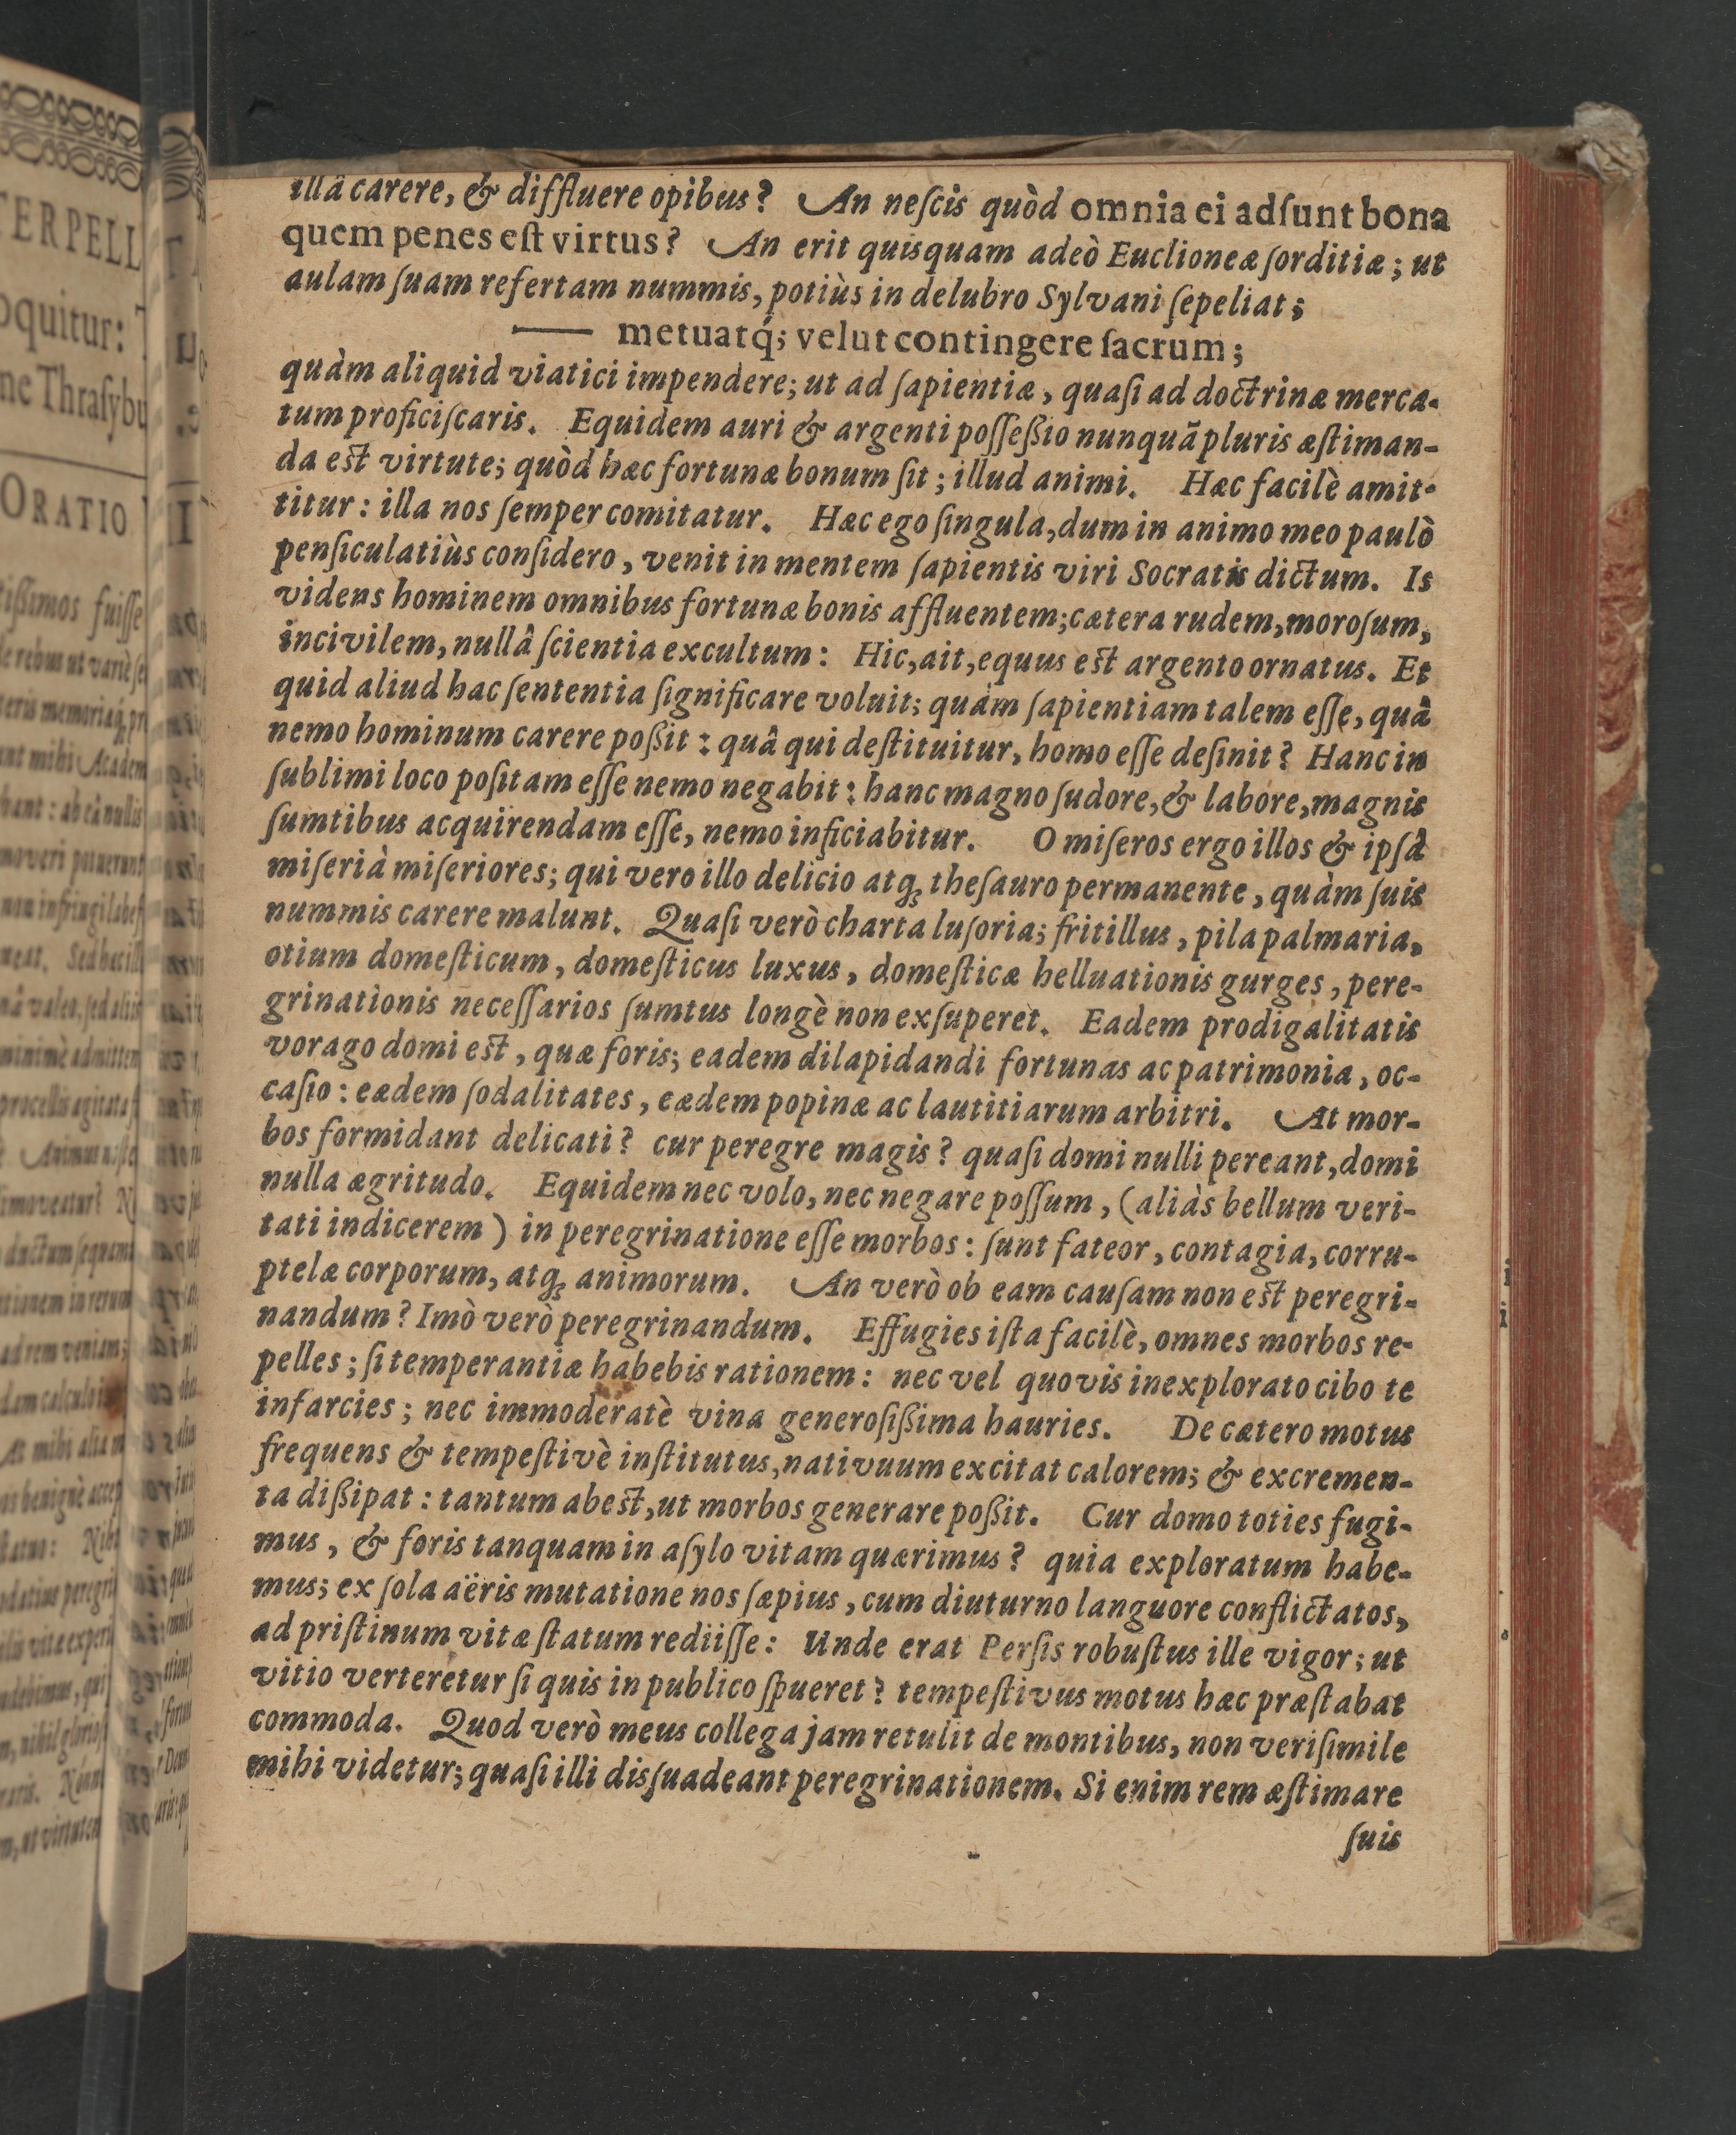 illâ carere, & diffluere opibus? An neſcis quòd omnia ei adſunt bona
quem penes eſt virtus? An erit quisquam adeò Euclioneæ ſorditiæ; ut
aulam ſuam refertam nummis, potiùs in delubro Sylvani ſepeliat;
—— metuatq́; velut contingere ſacrum;
quàm aliquid viatici impendere; ut ad ſapientiæ, quaſi ad doctrinæ merca-
tum proficiſcaris. Equidem auri & argenti poſſeßio nunquã pluris æſtiman-
da eſt virtute; quòd hæc fortunæ bonum ſit; illud animi. Hæc facilè amit-
titur: illa nos ſemper comitatur. Hæc ego ſingula, dum in animo meo paulò
penſiculatiùs conſidero, venit in mentem ſapientis viri Socratis dictum. Is
videns hominem omnibus fortunæ bonis affluentem; cætera rudem, moroſum,
incivilem, nullâ ſcientia excultum: Hic, ait, equus eſt argento ornatus. Et
quid aliud hac ſententia ſignificare voluit; quàm ſapientiam talem eſſe, quâ
nemo hominum carere poßit: quâ qui deſtituitur, homo eſſe deſinit? Hanc in
ſublimi loco poſitam eſſe nemo negabit: hanc magno ſudore, & labore, magnis
ſumtibus acquirendam eſſe, nemo inficiabitur. O miſeros ergo illos & ipſâ
miſeriâ miſeriores; qui vero illo delicio atq; theſauro permanente, quàm ſuis
nummis carere malunt. Quaſi verò charta luſoria; fritillus, pila palmaria,
otium domeſticum, domeſticus luxus, domeſticæ helluationis gurges, pere-
grinationis neceſſarios ſumtus longè non exſuperet. Eadem prodigalitatis
vorago domi eſt, quæ foris; eadem dilapidandi fortunas ac patrimonia, oc-
caſio: eædem ſodalitates, eædem popinæ ac lautitiarum arbitri. At mor-
bos formidant delicati? cur peregre magis? quaſi domi nulli pereant, domi
nulla ægritudo. Equidem nec volo, nec negare poſſum, (aliàs bellum veri-
tati indicerem) in peregrinatione eſſe morbos: ſunt fateor, contagia, corru-
ptelæ corporum, atq; animorum. An verò ob eam cauſam non eſt peregri-
nandum? Imò verò peregrinandum. Effugies iſta facilè, omnes morbos re-
pelles; ſi temperantiæ habebis rationem: nec vel quovis inexplorato cibo te
infarcies; nec immoderatè vina generoſißima hauries. De cætero motus
frequens & tempeſtivè inſtitutus, nativuum excitat calorem; & excremen-
ta dißipat: tantum abeſt, ut morbos generare poßit. Cur domo toties fugi-
mus, & foris tanquam in aſylo vitam quærimus? quia exploratum habe-
mus; ex ſola aëris mutatione nos ſæpius, cum diuturno languore conflictatos,
ad priſtinum vitæ ſtatum rediiſſe: Unde erat Perſis robuſtus ille vigor; ut
vitio verteretur ſi quis in publico ſpueret? tempeſtivus motus hæc præſtabat
commoda. Quod verò meus collega jam retulit de montibus, non veriſimile
mihi videtur; quaſi illi disſuadeant peregrinationem. Si enim rem æſtimare
ſuis